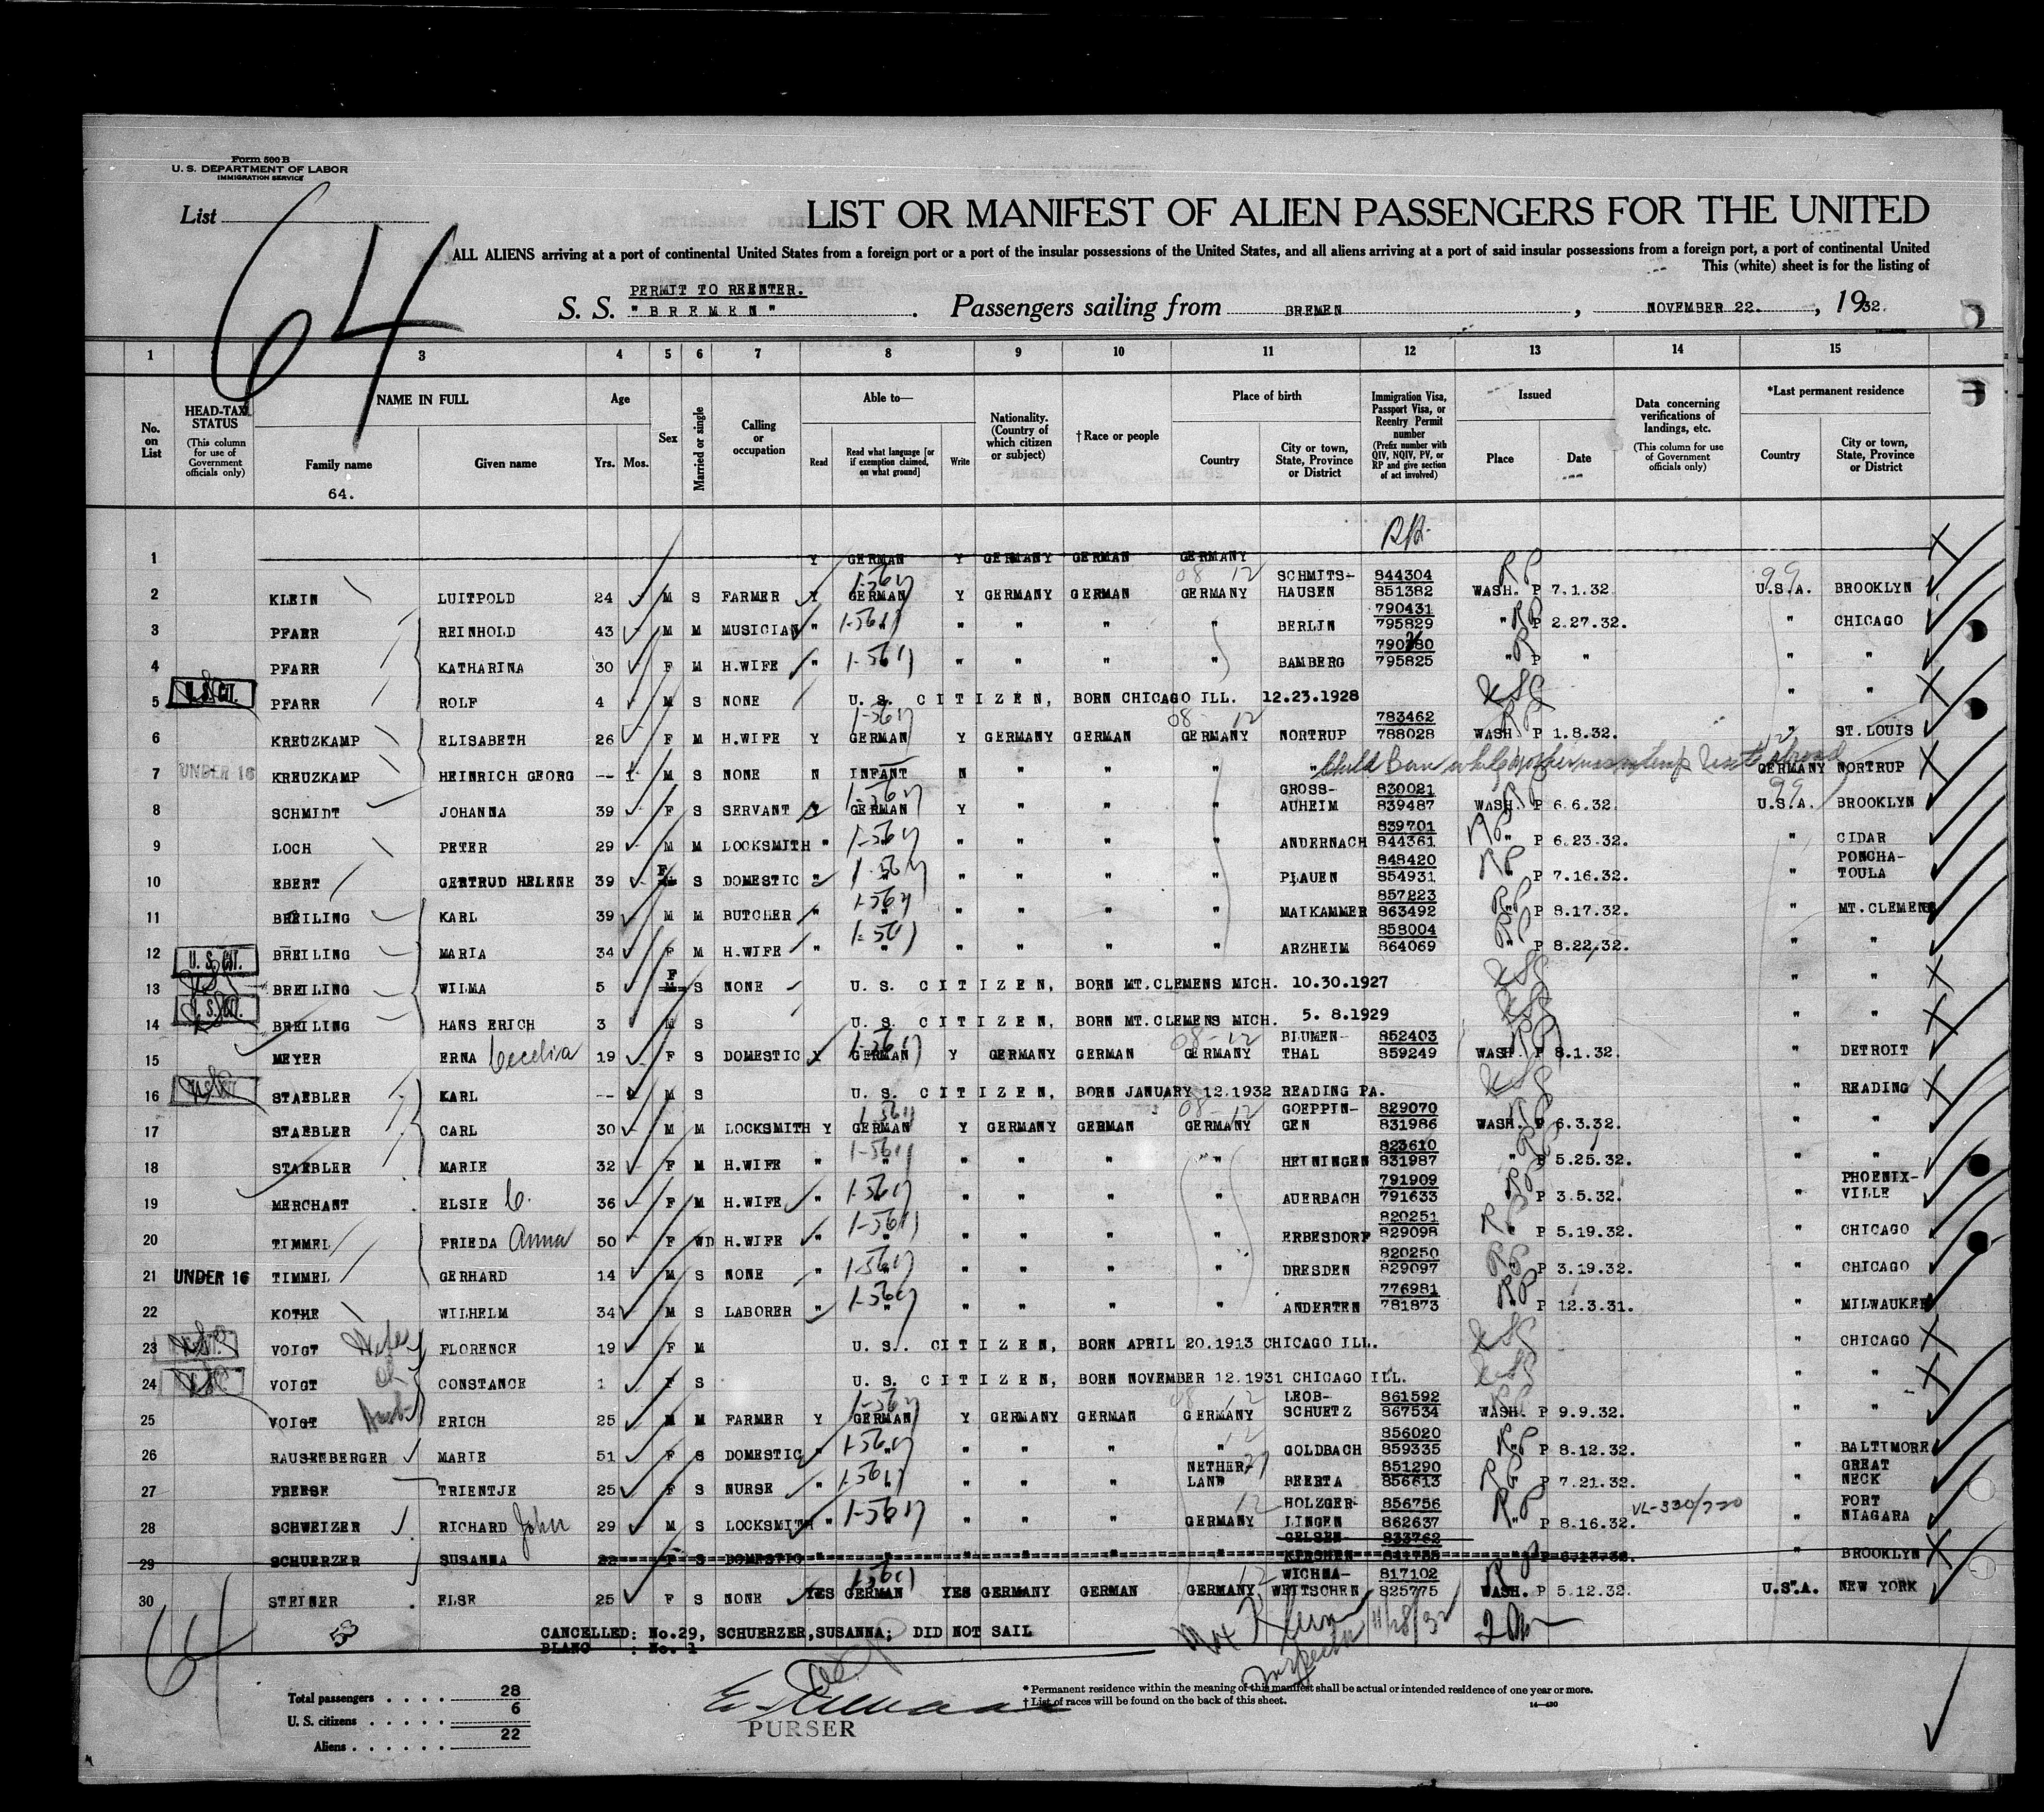 Form 500 B
U. S. DEPARTMENT OF LABOR
IMMIGRATION SERVICE
List
64
LIST OR MANIFEST OF ALIEN PASSENGERS FOR THE UNITED
ALL ALIENS arriving at a port of continental United States from a foreign port or a port of the insular possessions of the United States, and all aliens arriving at a port of said insular possessions from a foreign port, a port of continental United
This (white) sheet is for the listing of
PERMIT TO REENTER.
S. S. "BREMEN" . Passengers sailing from BREMEN , NOVEMBER 22. , 1932.
1 3 4 5 6 7 8 9 10 11 12 13 14 15
No. on List
HEAD-TAX STATUS (This column for use of Government officials only)
NAME IN FULL Family name Given name
64.
Age Yrs. Mos.
Sex
Married or single
Calling or occupation
Able to— Read Read what language [or if exemption claimed, on what ground] Write
Nationality. (Country of which citizen or subject)
†Race or people
Place of birth Country City or town, State, Province or District
Immigration Visa, Passport Visa, or Reentry Permit number (Prefix number with QIV, NQIV, PV, or RP and give section of act involved)
Issued Place Date
Data concerning verifications of landings, etc. (This column for use of Government officials only)
*Last permanent residence Country City or town, State, Province or District
1 Y GERMAN Y GERMANY GERMAN GERMANY
2 KLEIN LUITPOLD 24 M S FARMER Y GERMAN Y GERMANY GERMAN GERMANY SCHMITS-HAUSEN 844304 851382 WASH. P 7.1.32. U.S.A. BROOKLYN
3 PFARR REINHOLD 43 M M MUSICIAN " " " " " " BERLIN 790431 795829 " P 2.27.32. " CHICAGO
4 PFARR KATHARINA 30 F M H.WIFE " " " " " " BAMBERG 795825 " P " " "
5 U. S. CIT. PFARR ROLF 4 M S NONE U. S. CITIZEN, BORN CHICAGO ILL. 12.23.1928 " "
6 KREUZKAMP ELISABETH 26 F M H.WIFE Y GERMAN Y GERMANY GERMAN GERMANY NORTRUP 783462 788028 WASH P 1.8.32. " ST.LOUIS
7 UNDER 16 KREUZKAMP HEINRICH GEORG -- M S NONE N INFANT N " " " " Child Born while mother was on temp visit abroad GERMANY NORTRUP
8 SCHMIDT JOHANNA 39 F S SERVANT Y GERMAN Y " " " GROSS-AUHEIM 830021 839487 WASH. P 6.6.32. U.S.A. BROOKLYN
9 LOCH PETER 29 M M LOCKSMITH " " " " " " ANDERNACH 839701 844361 " P 6.23.32. " CIDAR
10 EBERT GERTRUD HELENE 39 F S DOMESTIC " " " " " " PLAUEN 848420 854931 " P 7.16.32. " PONCHA-TOULA
11 BREILING KARL 39 M M BUTCHER " " " " " " MAIKAMMER 857223 863492 " P 8.17.32. " MT.CLEMENS
12 BREILING MARIA 34 F M H.WIFE " " " " " " ARZHEIM 858004 864069 " P 8.22.32. " "
13 U. S. CIT. BREILING WILMA 5 F S NONE U. S. CITIZEN, BORN MT.CLEMENS MICH. 10.30.1927 " "
14 U. S. CIT. BREILING HANS ERICH 3 M S U. S. CITIZEN, BORN MT.CLEMENS MICH. 5. 8.1929 " "
15 MEYER ERNA Cecelia 19 F S DOMESTIC Y GERMAN Y GERMANY GERMAN GERMANY BLUMEN-THAL 852403 859249 WASH. P 8.1.32. " DETROIT
16 STAEBLER KARL -- M S U. S. CITIZEN, BORN JANUARY 12.1932 READING PA. " READING
17 STAEBLER CARL 30 M M LOCKSMITH Y GERMAN Y GERMANY GERMAN GERMANY GOEPPIN-GEN 829070 831986 WASH. P 6.3.32. " "
18 STAEBLER MARIE 32 F M H.WIFE " " " " " " HEININGEN 823610 831987 " P 5.25.32. " "
19 MERCHANT ELSIE C. 36 F M H.WIFE " " " " " " AUERBACH 791909 791633 " P 3.5.32. " PHOENIX-VILLE
20 TIMMEL FRIEDA Anna 50 F WD H.WIFE " " " " " " ERBESDORF 820251 829098 " P 5.19.32. " CHICAGO
21 UNDER 16 TIMMEL GERHARD 14 M S NONE " " " " " " DRESDEN 820250 829097 P 3.19.32. " CHICAGO
22 KOTHE WILHELM 34 M S LABORER " " " " " " ANDERTEN 776981 781873 " P 12.3.31. " MILWAUKEE
23 VOIGT Wife FLORENCE 19 F M U. S. CITIZEN, BORN APRIL 20.1913 CHICAGO ILL. " CHICAGO
24 VOIGT ch CONSTANCE 1 F S U. S. CITIZEN, BORN NOVEMBER 12.1931 CHICAGO ILL. " "
25 VOIGT Husb ERICH 25 M M FARMER Y GERMAN Y GERMANY GERMAN GERMANY LEOB-SCHUETZ 861592 867534 WASH. P 9.9.32. " "
26 RAUSENBERGER MARIE 51 F S DOMESTIC " " " " " " GOLDBACH 856020 859335 " P 8.12.32. " BALTIMORE
27 FREESE TRIENTJE 25 F S NURSE " " " " " NETHER-LAND BEERTA 851290 856613 " P 7.21.32. " GREAT NECK
28 SCHWEIZER RICHARD John 29 M S LOCKSMITH " " " " " GERMANY HOLZGER-LINGEN 856756 862637 " P 8.16.32. VL-330/720 " FORT NIAGARA
29 SCHUERZER SUSANNA 22 F S DOMESTIC " " " " " " GELSEN-KIRSHEN 833762 " BROOKLYN
30 STEINER ELSE 25 F S NONE YES GERMAN YES GERMANY GERMAN GERMANY WICHMA-WEITSCHEN 817102 825775 WASH. P 5.12.32. U.S.A. NEW YORK
64 53
CANCELLED: No.29, SCHUERZER,SUSANNA; DID NOT SAIL
BLANC : No. 1
Inspector 11/28/32
Total passengers 28
U. S. citizens 6
Aliens 22
PURSER
* Permanent residence within the meaning of this manifest shall be actual or intended residence of one year or more.
† List of races will be found on the back of this sheet.
14—430